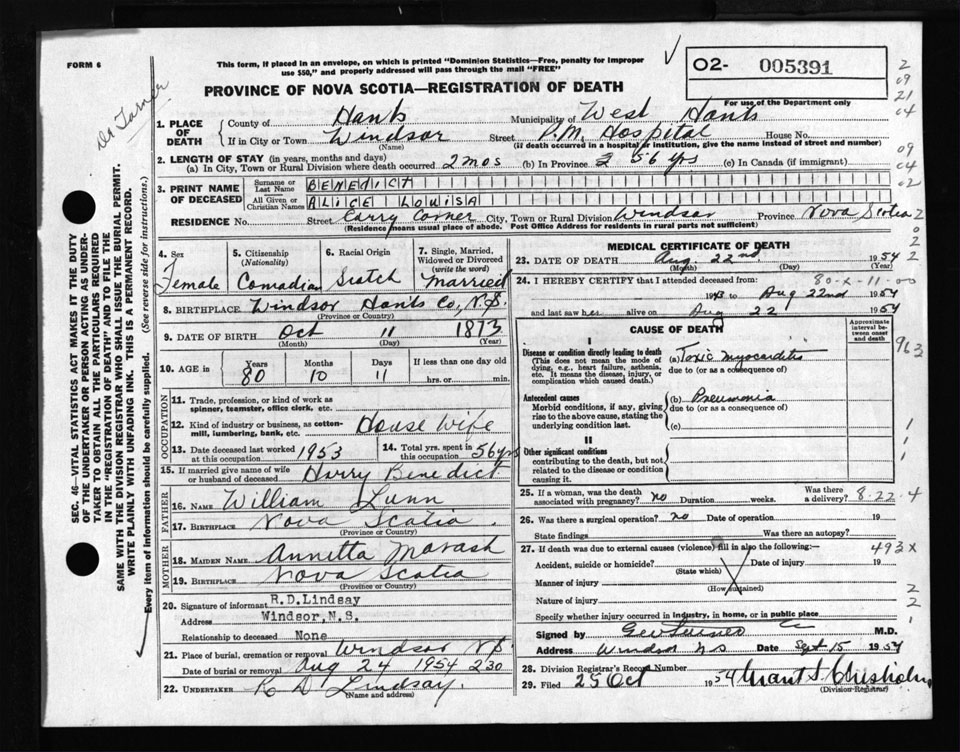 FORM 6
This form, if placed in an envelope, on which is printed "Dominion Statistics—Free, penalty for improper
use $50," and properly addressed will pass through the mail "FREE"
O2- 005391
For use of the Department only
PROVINCE OF NOVA SCOTIA—REGISTRATION OF DEATH
2
09
21
04
09
04
02
1. PLACE OF DEATH
County of Hants Municipality of West Hants
If in City or Town Windsor Street P.M. Hospital House No.
(Name) (If death occurred in a hospital or institution, give the name instead of street and number)
2. LENGTH OF STAY (in years, months and days)
(a) In City, Town or Rural Division where death occurred 2 mos (b) In Province 56 yrs (c) In Canada (if immigrant)
3. PRINT NAME OF DECEASED
Surname or Last Name BENEDICT
All Given or Christian Names ALICE LOUISA
RESIDENCE No. Street Curry Corner City, Town or Rural Division Windsor Province Nova Scotia
(Residence means usual place of abode. Post Office Address for residents in rural parts not sufficient)
4. Sex Female
5. Citizenship (Nationality) Canadian
6. Racial Origin Scotch
7. Single, Married, Widowed or Divorced (write the word) Married
8. BIRTHPLACE Windsor Hants Co, N.S.
(Province or Country)
9. DATE OF BIRTH Oct 11 1873
(Month) (Day) (Year)
10. AGE in Years Months Days If less than one day
80 10 11 hrs. or min.
OCCUPATION
11. Trade, profession, or kind of work as
spinner, teamster, office clerk, etc.
12. Kind of industry or business, as cotten-
mill, lumbering, bank, etc. House Wife
13. Date deceased last worked at this occupation 1953
14. Total yrs. spent in this occupation 56 yrs
15. If married give name of wife
or husband of deceased Harry Benedict
FATHER
16. NAME William Lunn
17. BIRTHPLACE Nova Scotia
(Province or Country)
MOTHER
18. MAIDEN NAME Annetta
19. BIRTHPLACE Nova Scotia
(Province or Country)
20. Signature of informant R.D.Lindsay
Address Windsor,N.S.
Relationship to deceased None
21. Place of burial, cremation or removal Windsor NS
Date of burial or removal Aug 24 1954 230
22. UNDERTAKER R D Lindsay
(Name and address)
MEDICAL CERTIFICATE OF DEATH
23. DATE OF DEATH Aug 22nd 1954
(Month) (Day) (Year)
24. I HEREBY CERTIFY that I attended deceased from: 80-X-11-00
to Aug 22nd 1954
and last saw her alive on Aug 22 1954
CAUSE OF DEATH
Approximate interval between onset and death
963
I
Disease or condition directly leading to death
(This does not mean the mode of dying, e.g., heart failure, asthenia, etc. It means the disease, injury, or complication which caused death.
(a) Toxic myocarditis
due to (or as a consequence of)
Antecedent causes
Morbid conditions, if any, giving rise to the above cause, stating the underlying condition last.
(b) Pneumonia
due to (or as a consequence of)
(c)
II
Other significant conditions
contributing to the death, but not related to the disease or condition causing it.
25. If a woman, was the death associated with pregnancy? no Duration weeks. Was there a delivery? 8-22-4
26. Was there a surgical operation? no Date of operation 19
State findings Was there an autopsy?
27. If death was due to external causes (violence) fill in also the following: 493X
Accident, suicide or homicide? Date of injury 19
(State which)
Manner of injury
(How sustained)
Nature of injury
Specify whether injury occurred in industry, in home, or in public place
Signed by M.D.
Address Windsor NS Date Sept 15 1954
28. Division Registrar's Record Number
29. Filed 25 Oct 1954 Grant S. Chisholm
(Division Registrar)
SEC. 46—VITAL STATISTICS ACT MAKES IT THE DUTY
OF THE UNDERTAKER OR PERSON ACTING AS UNDER-
TAKER TO OBTAIN ALL THE PARTICULARS REQUIRED
IN THE "REGISTRATION OF DEATH" AND TO FILE THE
SAME WITH THE DIVISION REGISTRAR WHO SHALL ISSUE THE BURIAL PERMIT.
WRITE PLAINLY WITH UNFADING INK. THIS IS A PERMANENT RECORD.
Every item of information should be carefully supplied. (See reverse side for instructions.)